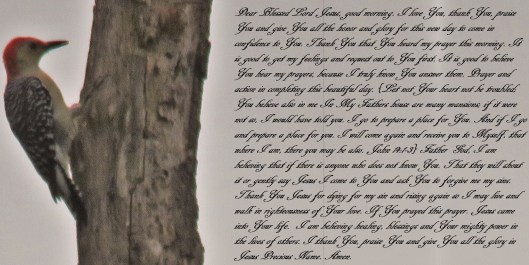 Dear Blessed Lord Jesus, good morning. I love You, thank You, praise
You and give You all the honor and glory for this new day to come in
confidence to You. Thank You that You heard my prayer this morning. It
is good to get my feelings and request out to You first. It is good to believe
You hear my prayers, because I truly know You answer them. Prayer and
action in completing this beautiful day. {Let not Your heart not be troubled,
You believe also in me In My Fathers house are many mansions, if it were
not so, I would have told you. I go to prepare a place for You. And if I go
and prepare a place for you, I will come again and receive you to Myself, that
where I am, there you may be also. John 14:1-3} Father God, I am
believing that if there is anyone who does not know You. That they will shout
it or gently say Jesus I come to You and ask You to forgive me my sins.
Thank You Jesus for dying for my sin and rising again so I may live and
walk in righteousness of Your love. If You prayed this prayer, Jesus came
into Your life. I am believing healing, blessings and Your mighty power in
the lives of others. I thank You, praise You and give You all the glory in
Jesus Precious Name. Amen.